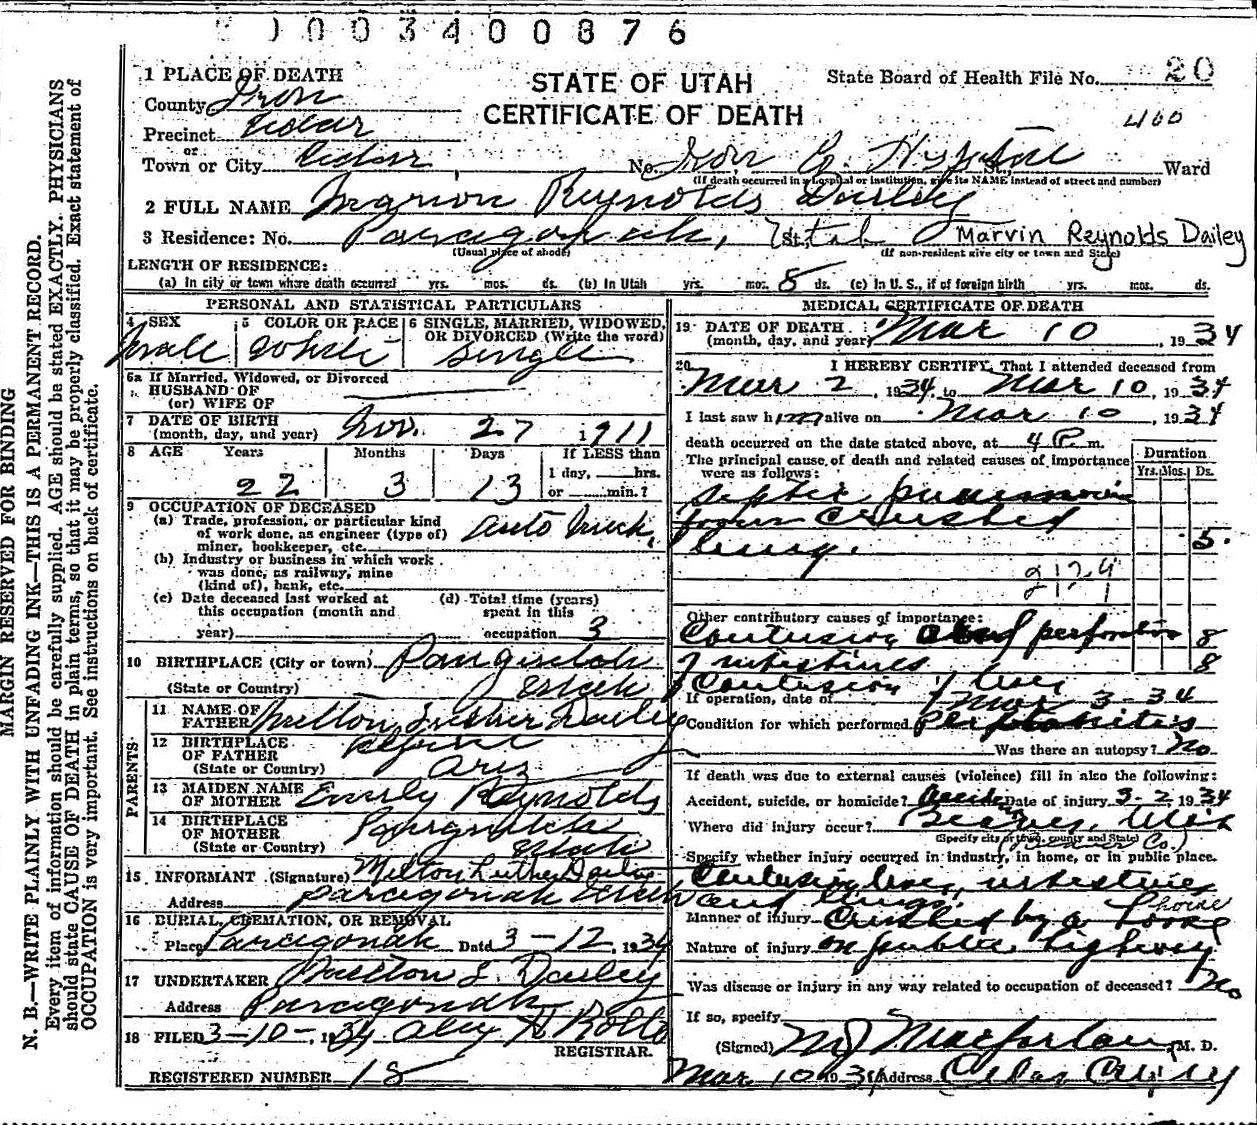 003400876
1 PLACE OF DEATH
County Iron
Precinct Cedar
or
Town or City Cedar
STATE OF UTAH
CERTIFICATE OF DEATH
State Board of Health File No. 20
400
No. Iron Co. Hospital St., Ward
(If death occurred in a hospital or institution, give its NAME instead of street and number)
2 FULL NAME Reynolds Dailey
3 Residence: No. Paragonah, St. Utah Marvin Reynolds Dailey
(Usual place of abode) (If non-resident give city or town and State)
LENGTH OF RESIDENCE:
(a) In city or town where death occurred yrs. mos. 8 ds. (b) In Utah yrs. mos. ds. (c) In U. S., if of foreign birth yrs. mos. ds.
PERSONAL AND STATISTICAL PARTICULARS
4 SEX Male
5 COLOR OR RACE White
6 SINGLE, MARRIED, WIDOWED, OR DIVORCED (Write the word) Single
6a If Married, Widowed, or Divorced
HUSBAND OF
(or) WIFE OF
7 DATE OF BIRTH
(month, day, and year) Nov. 27 1911
8 AGE Years Months Days If LESS than
1 day, hrs.
22 3 13 or min.?
9 OCCUPATION OF DECEASED
(a) Trade, profession, or particular kind
of work done, as engineer (type of)
miner, bookkeeper, etc. auto mech.
(b) Industry or business in which work
was done, as railway, mine
(kind of), bank, etc.
(c) Date deceased last worked at
this occupation (month and
year)
(d) Total time (years)
spent in this
occupation 3
10 BIRTHPLACE (City or town) Panguitch
(State or Country) Utah
PARENTS
11 NAME OF
FATHER Milton Luther Dailey
12 BIRTHPLACE
OF FATHER
(State or Country) Ariz
13 MAIDEN NAME
OF MOTHER Emily Reynolds
14 BIRTHPLACE
OF MOTHER Panguitch
(State or Country) Utah
15 INFORMANT (Signature) Milton Luther Dailey
Address Paragonah Utah
16 BURIAL, CREMATION, OR REMOVAL
Place Paragonah Date 3-12, 1934
17 UNDERTAKER Milton L. Dailey
Address Paragonah
18 FILED 3-10-, 1934 H
REGISTRAR.
REGISTERED NUMBER 18
MEDICAL CERTIFICATE OF DEATH
19 DATE OF DEATH
(month, day, and year) Mar 10, 1934
20 I HEREBY CERTIFY, That I attended deceased from
Mar 2, 1934, to Mar 10, 1934
I last saw him alive on Mar 10, 1934
death occurred on the date stated above, at 4 P. m.
The principal cause of death and related causes of importance
were as follows:
Duration
Yrs. Mos. Ds.
Septic pneumonia
from crushed
lung. 5
Other contributory causes of importance:
Contusion and perforation 8
of intestines 8
Contusion of liver
If operation, date of Mar 3-34
Condition for which performed Peritonitis
Was there an autopsy? No
If death was due to external causes (violence) fill in also the following:
Accident, suicide, or homicide? Accident Date of injury 3-2 1934
Where did injury occur? Beaver, Utah
(Specify city or town, county and State) Co.)
Specify whether injury occurred in industry, in home, or in public place.
Contusion liver, intestines
and lungs.
Manner of injury Crushed by a horse
horse
Nature of injury on public highway
Was disease or injury in any way related to occupation of deceased? No
If so, specify
(Signed) M J Macfarlane, M. D.
Mar 10 1934 Address Cedar City
MARGIN RESERVED FOR BINDING
N. B.—WRITE PLAINLY WITH UNFADING INK—THIS IS A PERMANENT RECORD.
Every item of information should be carefully supplied. AGE should be stated EXACTLY. PHYSICIANS
should state CAUSE OF DEATH in plain terms, so that it may be properly classified. Exact statement of
OCCUPATION is very important. See instructions on back of certificate.